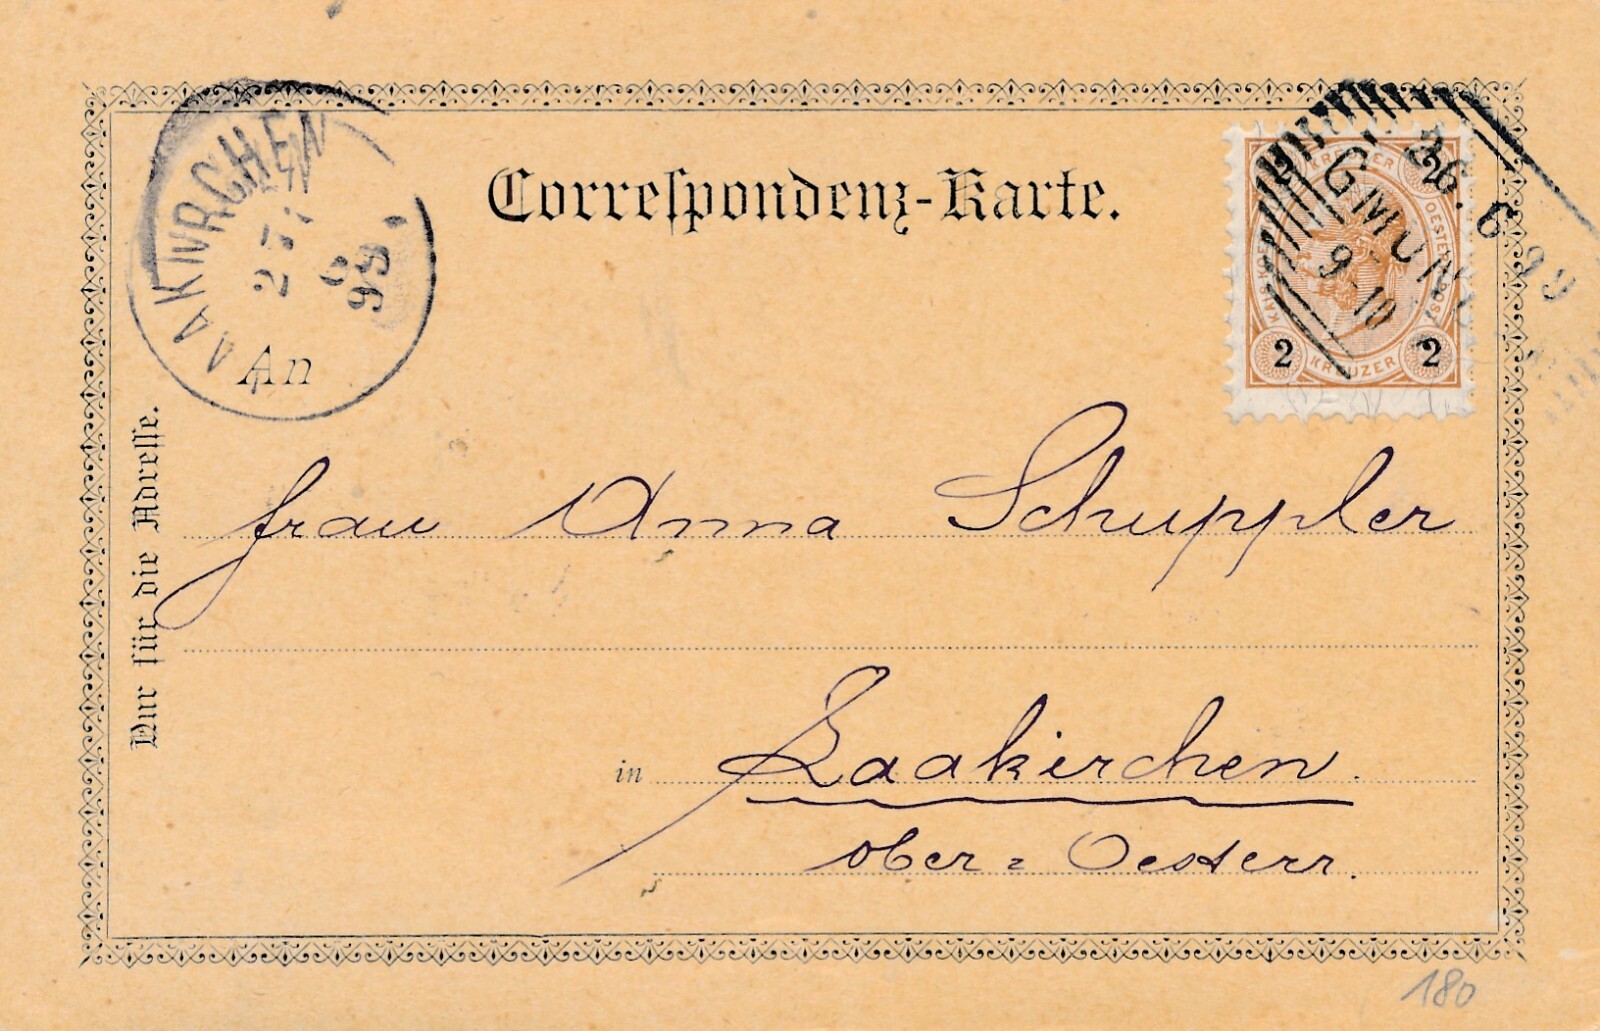 Correſpondenz-Karte.
LAAKIRCHEN
27
6
99
2 KREUZER 2
GMUND
26. 6 99
9-10
2 KREUZER 2
An
Nur für die Adreſſe.
Frau Anna Schuppler
in Laakirchen.
Ober = Oesterr.
180